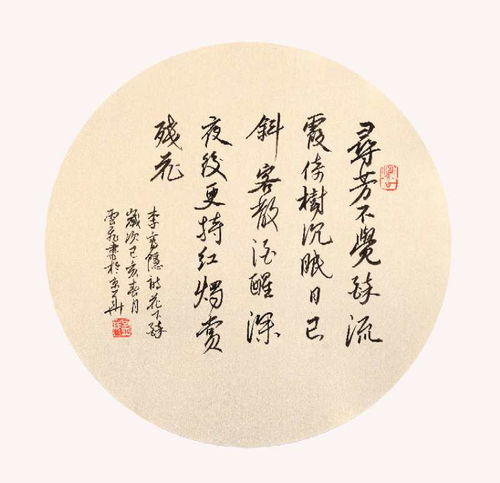 尋芳不覺醉流
霞倚樹沉眠日已
斜客散酒醒深
夜後更持红燭賞
殘花
李商隱詩花下醉
歲次己亥春月
雲飛書於京華